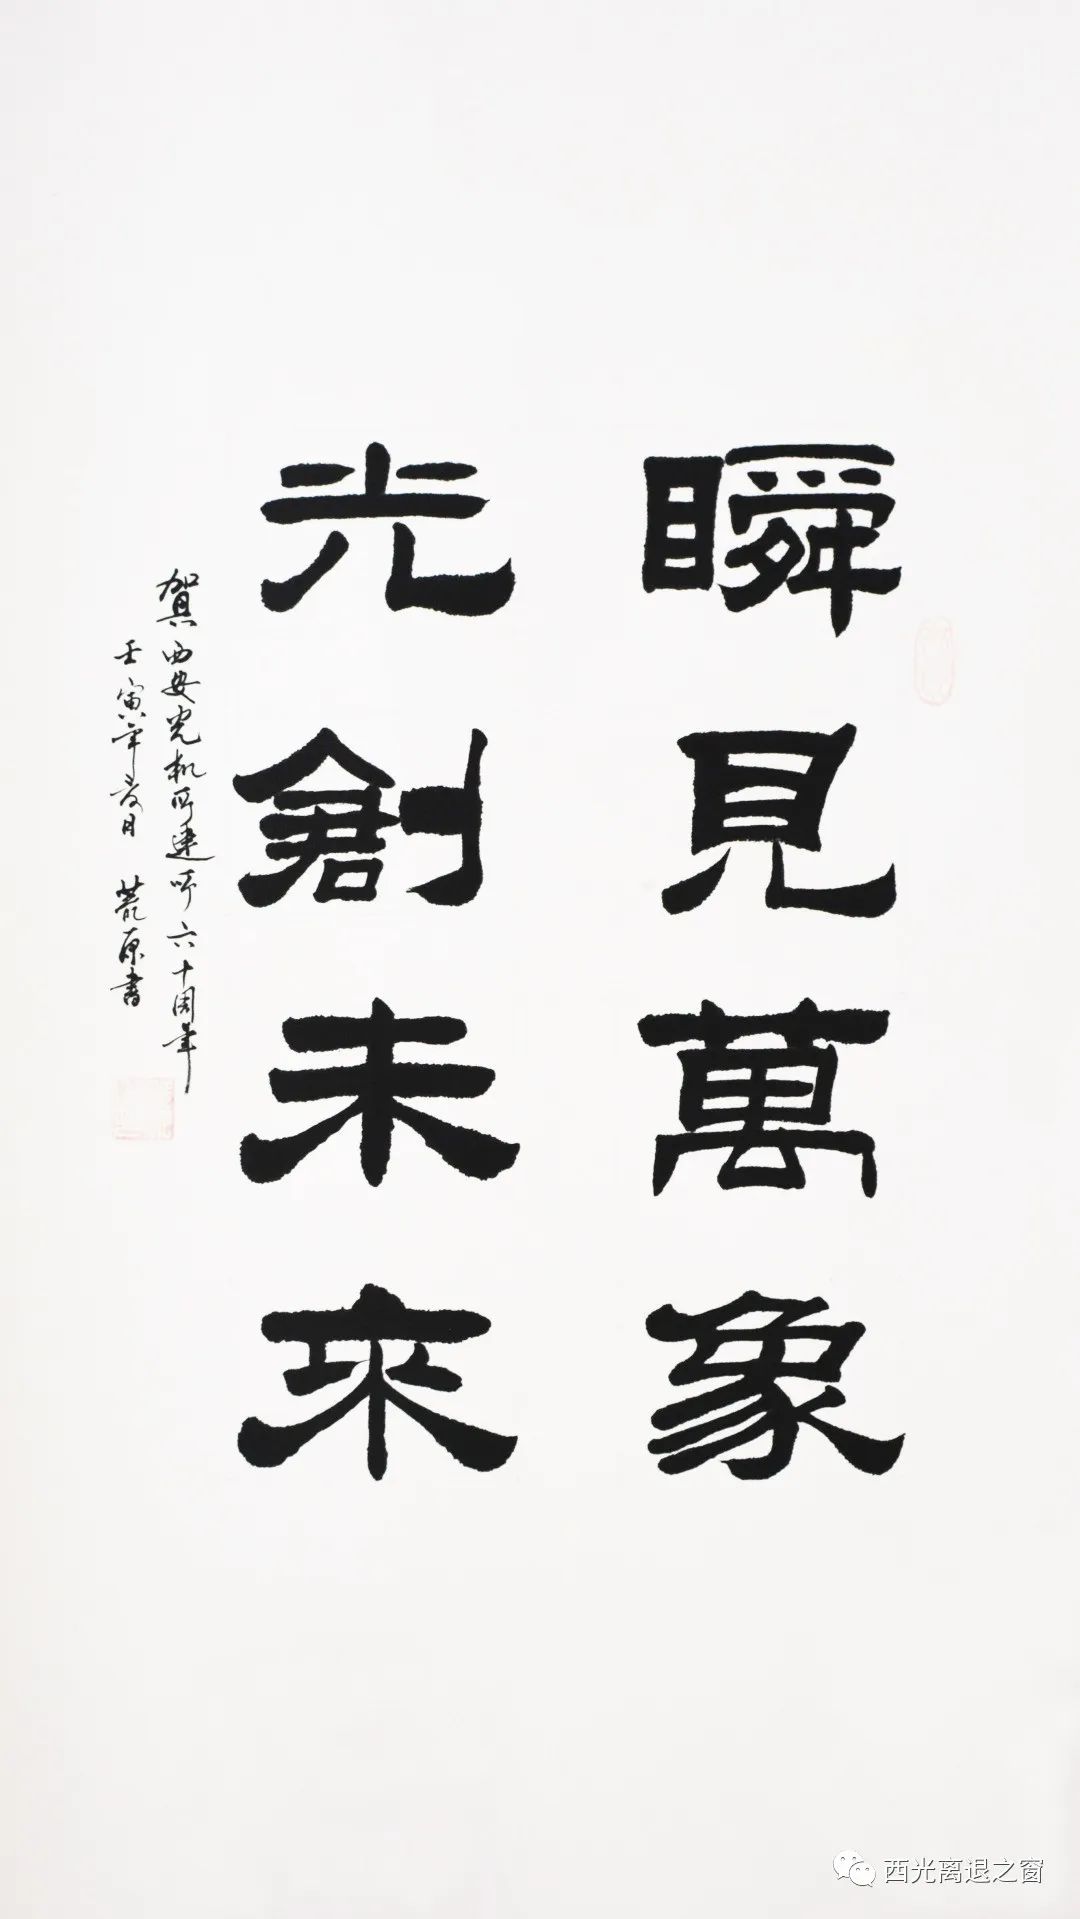 瞬見萬象
光創未來
賀西安光机所建所六十周年
壬寅年春月 荒原書
西光离退之窗